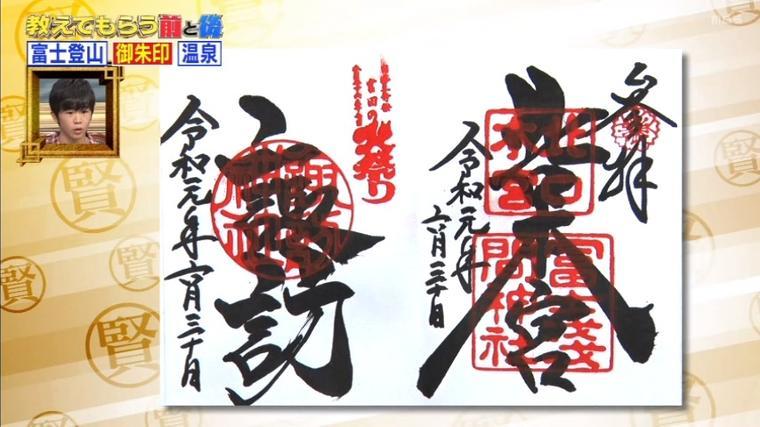 教えてもらう前と後
富士登山 御朱印 温泉
奉拝
北口本宮
北口
本宮
冨士浅
間神社
令和元年
六月三十日
吉田の
火祭り
諏訪
令和元年六月三十日
賢
賢
賢
賢
賢
賢